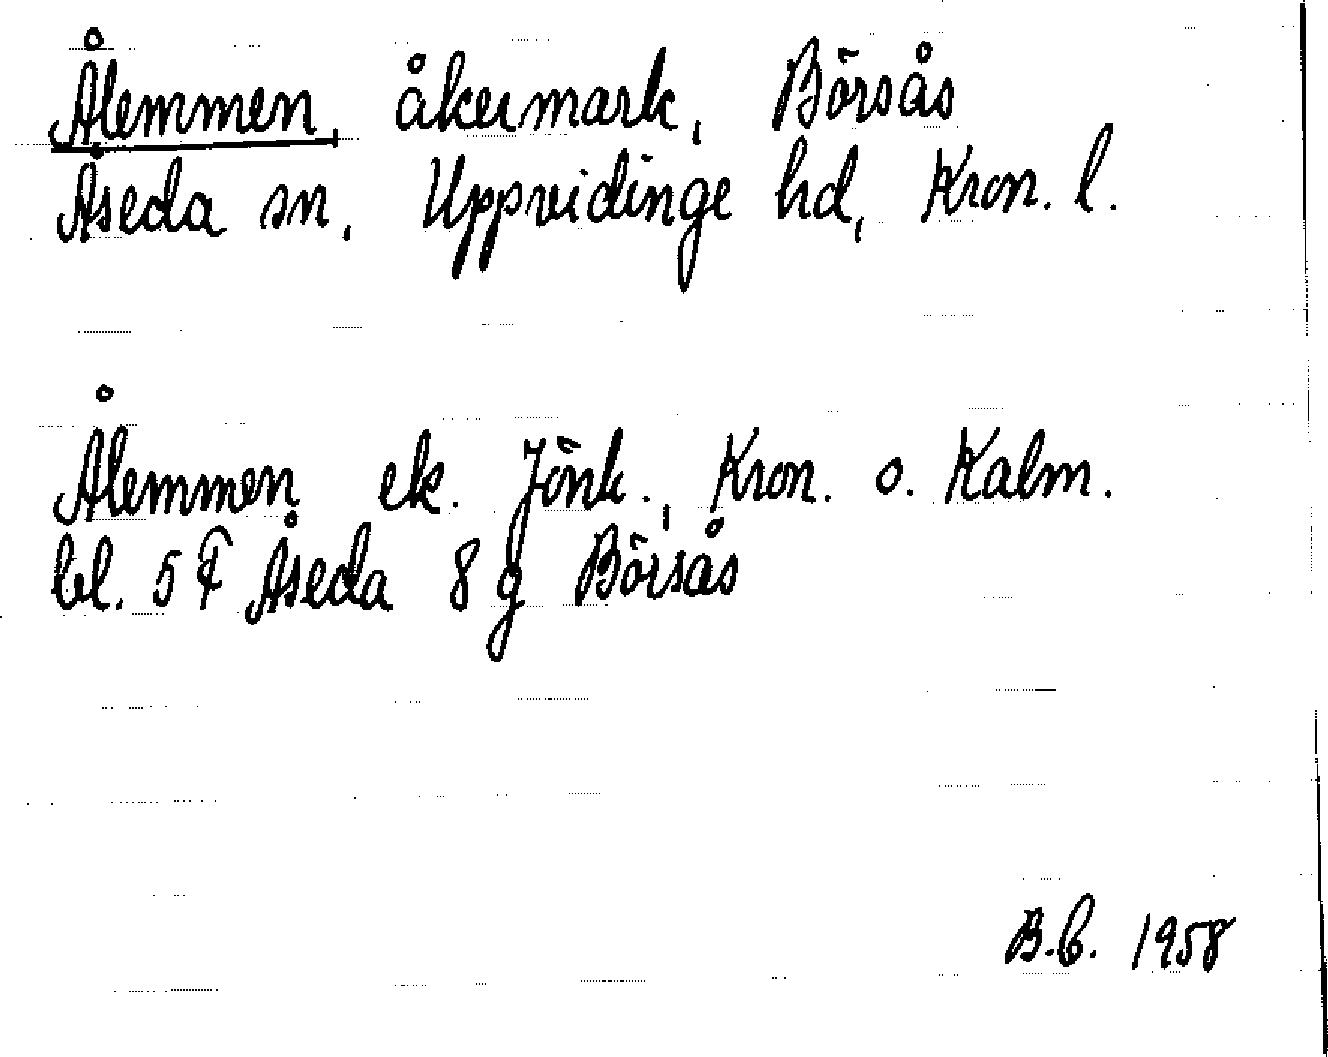 Ålemmen, åkermark, Börsås
Åseda sn, Uppvidinge hd, Kron. l.
Ålemmen ek. Jönk., Kron. o. Kalm.
bl. 5 F Åseda 8 g Börsås
B.b. 1958